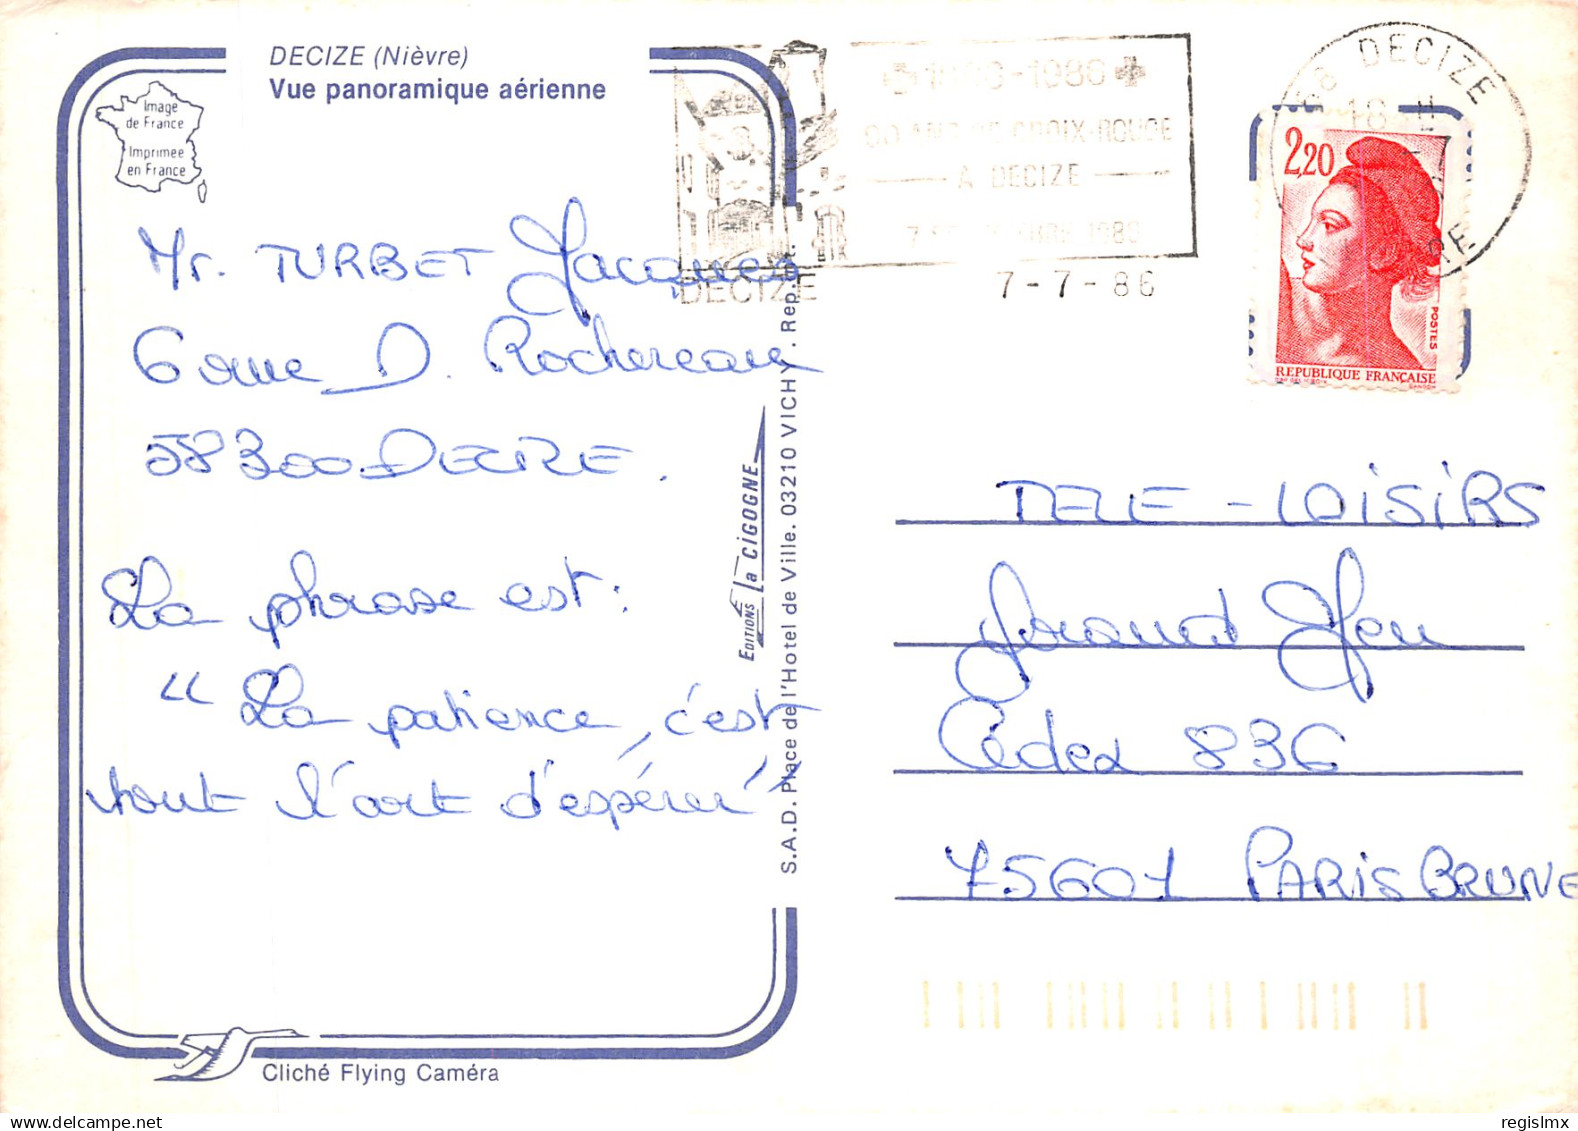 DECIZE (Nièvre)
Vue panoramique aérienne
Image
de France
Imprimée
en France
Mr. TURBET Jacques
6 D. Rochereau
58300 DECIZE.
La phrase est :
" La patience, c'est
tout l'art d'espérer"
Cliché Flying Caméra
EDITIONS la CIGOGNE
S.A.D. Place de l'Hotel de Ville. 03210 VICHY. Rep.
-1986
90 ANS DE CROIX-ROUGE
A DECIZE
DECIZE
7-7-86
58 DECIZE
2,20
POSTES
REPUBLIQUE FRANÇAISE
TELE-LOISIRS
Grand Jeu
Cedex 836
75601 PARIS BRUNE
regislmx